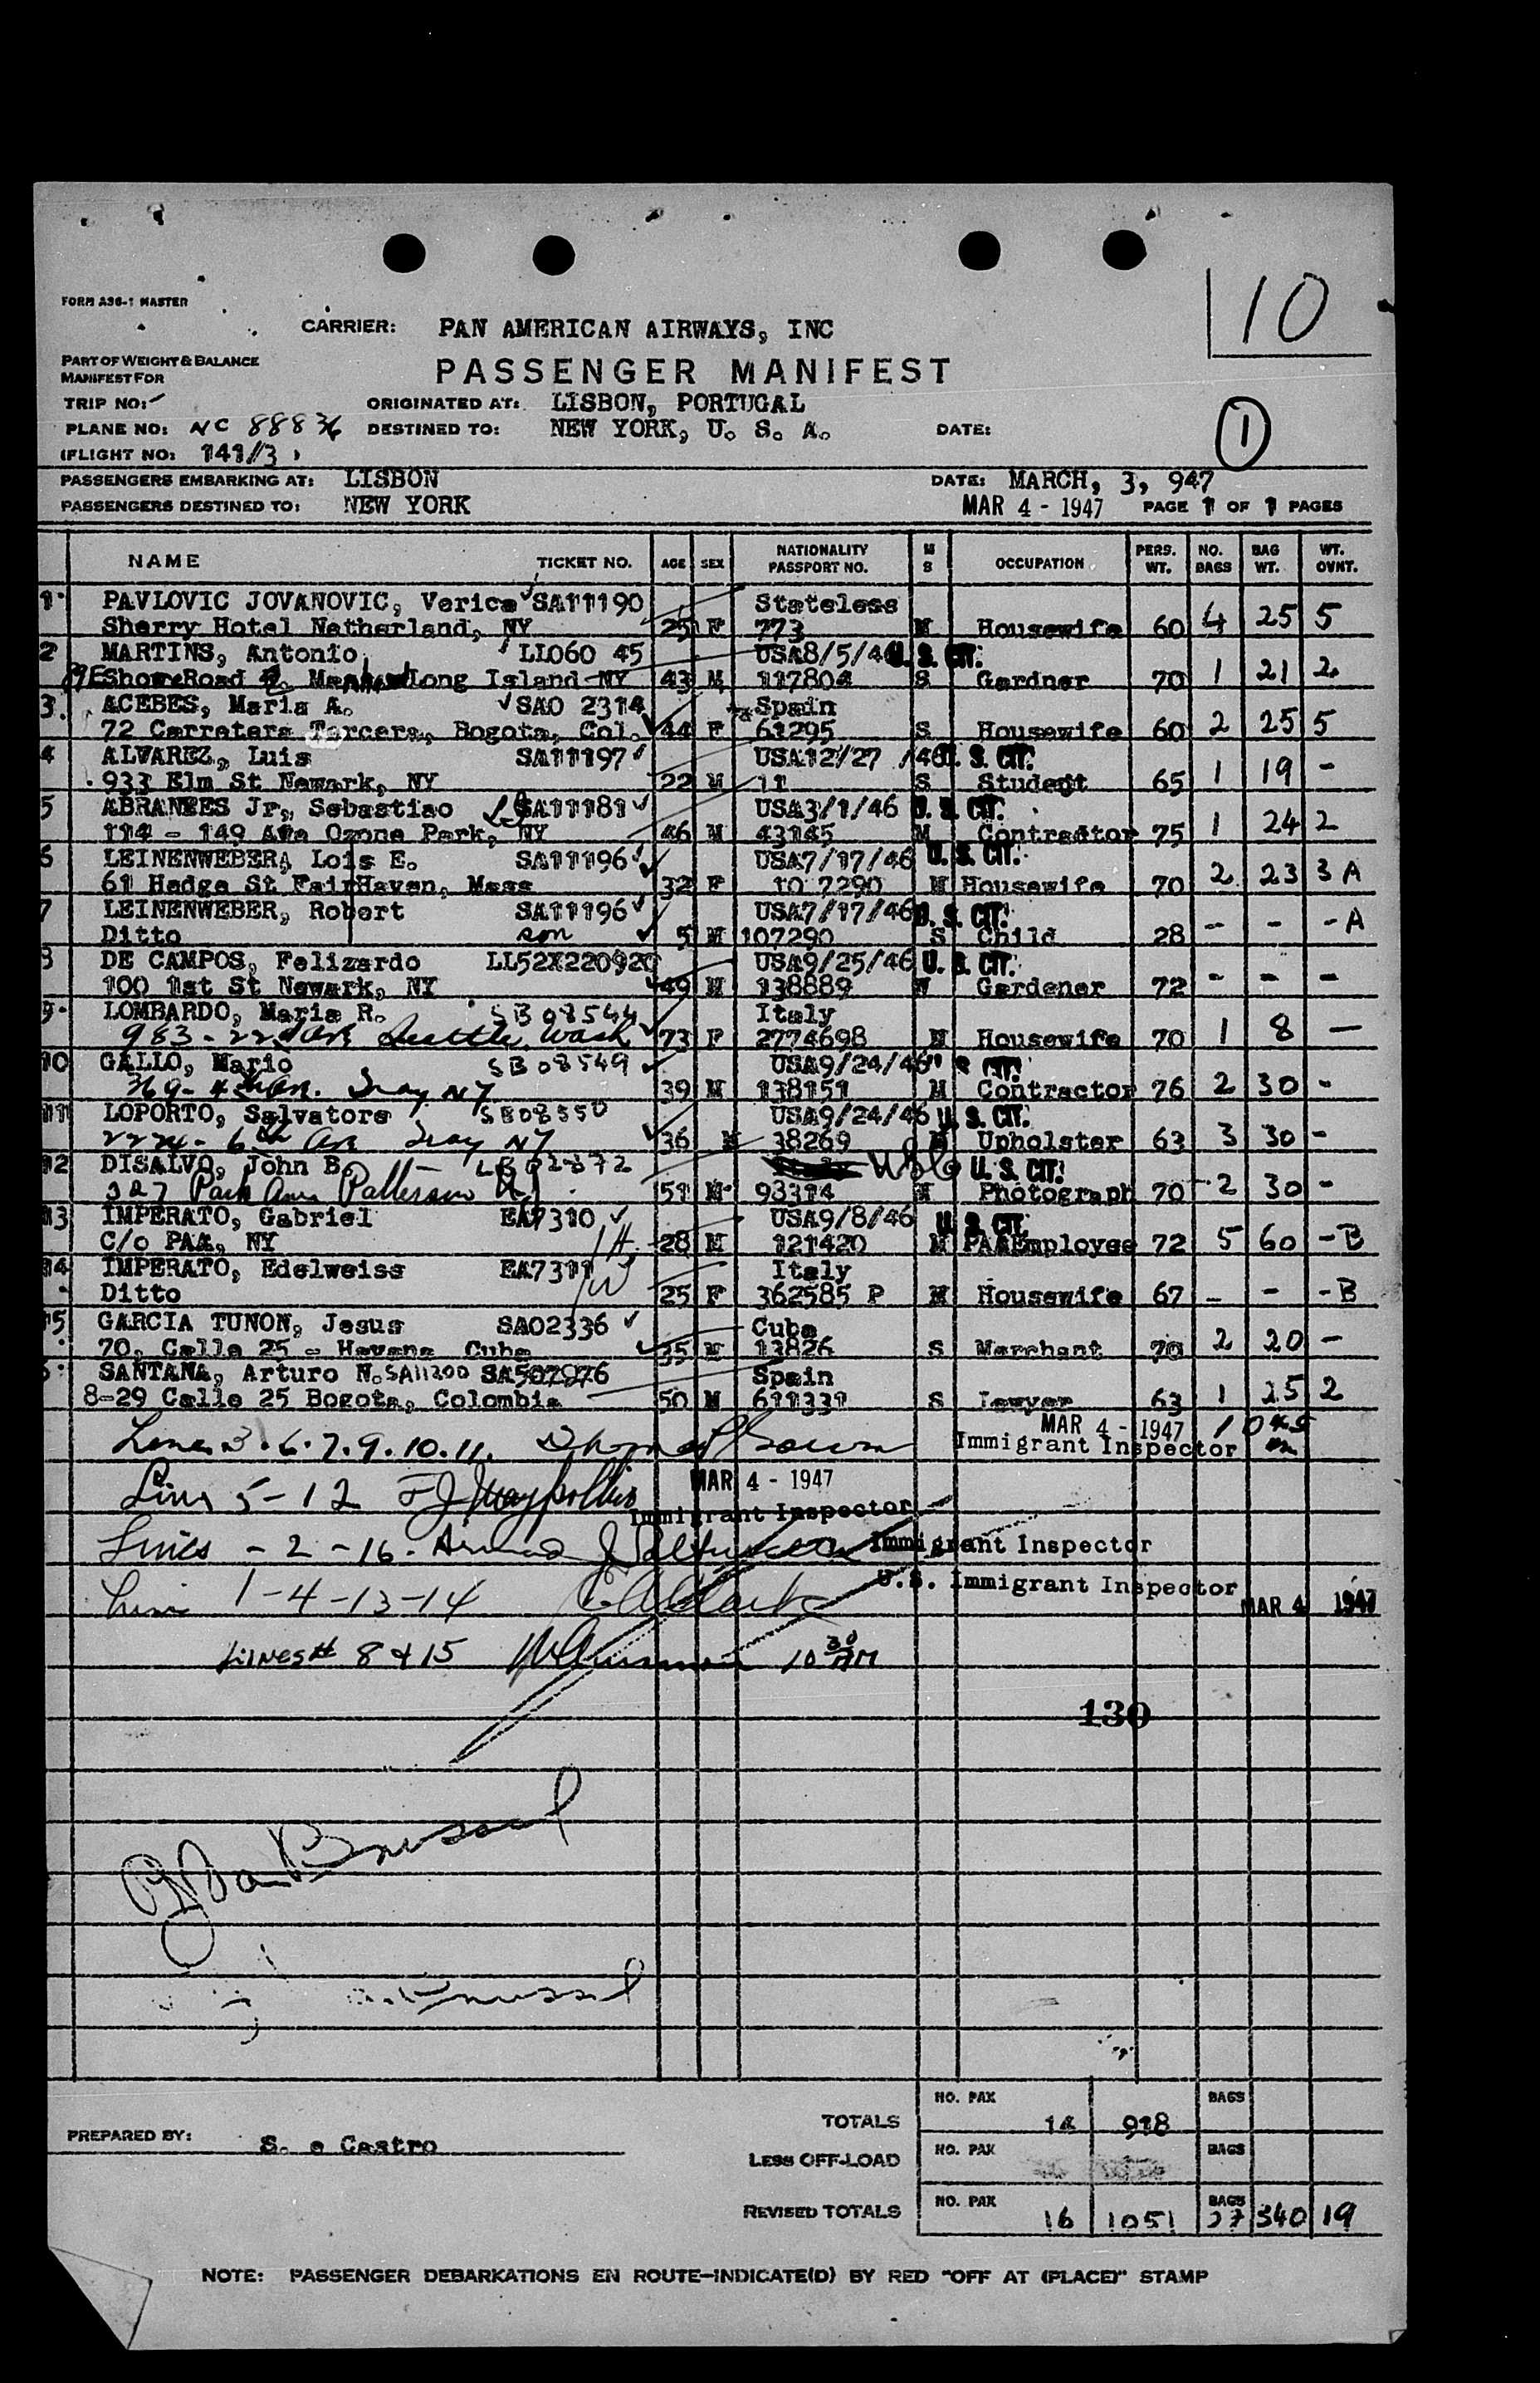 10
FORM A36-1 MASTER
CARRIER: PAN AMERICAN AIRWAYS, INC
PART OF WEIGHT & BALANCE
MANIFEST FOR
PASSENGER MANIFEST
TRIP NO: ORIGINATED AT: LISBON, PORTUGAL
PLANE NO: NC 88836 DESTINED TO: NEW YORK, U. S. A. DATE: 1
(FLIGHT NO: 141/3
PASSENGERS EMBARKING AT: LISBON DATE: MARCH, 3, 947
PASSENGERS DESTINED TO: NEW YORK MAR 4 - 1947 PAGE 1 OF 1 PAGES
NAME TICKET NO. AGE SEX NATIONALITY PASSPORT NO. M S OCCUPATION PERS. WT. NO. BAGS BAG WT. WT. OVNT.
1 PAVLOVIC JOVANOVIC, Verica SA11190 Stateless
Sherry Hotel Netherland, NY 25 F 773 M Housewife 60 4 25 5
2 MARTINS, Antonio LL060 45 USA8/5/46 U. S. CIT.
Shore Road Long Island NY 43 M 117804 S Gardner 70 1 21 2
3. ACEBES, Maria A. SAO 2314 Spain
72 Carretera Tercera, Bogota, Col. 44 F 61295 S Housewife 60 2 25 5
4 ALVAREZ, Luis SA11197 USA12/27 /46 U. S. CIT.
933 Elm St Newark, NY 22 M 11 S Student 65 1 19 -
5 ABRANTES Jr, Sebastiao SA11181 USA3/1/46 U. S. CIT.
114 - 149 Ave Ozone Park, NY 46 M 43145 M Contractor 75 1 24 2
6 LEINENWEBER, Lois E. SA11196 USA7/17/46 U. S. CIT.
61 Hedge St FairHaven, Mass 32 F 10 7290 M Housewife 70 2 23 3 A
7 LEINENWEBER, Robert SA11196 USA7/17/46 U. S. CIT.
Ditto son 5 M 107290 S Child 28 - - - A
8 DE CAMPOS, Felizardo LL52X220920 USA9/25/46 U. S. CIT.
100 1st St Newark, NY 49 M 138889 Gardener 72 - - -
9. LOMBARDO, Maria R. SB08544 Italy
983 - 22nd Ave Seattle, Wash 73 F 2774698 M Housewife 70 1 8 -
10 GALLO, Mario SB08549 USA9/24/46 CIT.
369- Troy NY 39 M 138151 M Contractor 76 2 30 -
11 LOPORTO, Salvatore SB08550 USA9/24/46 U. S. CIT.
2224 - 6th Ave Troy NY 36 M 38269 M Upholster 63 3 30 -
12 DISALVO, John B. U. S. CIT.
327 Park Ave Patterson NJ 51 M 93314 M Photograph 70 2 30 -
13 IMPERATO, Gabriel EA7310 USA9/8/46 U. S. CIT.
C/o PAA, NY 28 M 121420 M PAAEmployee 72 5 60 - B
14 IMPERATO, Edelweiss EA7311 Italy
Ditto 25 F 362585 P M Housewife 67 - - - B
15 GARCIA TUNON, Jesus SA02336 Cuba
70, Calle 25 - Havana Cuba 35 M 13826 S Merchant 70 2 20 -
SANTANA, Arturo N. SA11200 SA507976 Spain
8-29 Calle 25 Bogota, Colombia 50 M 611331 S Lawyer 63 1 25 2
Lines 3. 6. 7. 9. 10. 11. MAR 4 - 1947 10 45
Immigrant Inspector
Lines 5 - 12 MAR 4 - 1947
Immigrant Inspector
Lines - 2 - 16. Immigrant Inspector
Line 1 - 4 - 13 - 14 U.S. Immigrant Inspector MAR 4 1947
Lines # 8 & 15 10 30 AM
130
TOTALS NO. PAX 14 918 BAGS
PREPARED BY: S. e Castro
LESS OFF-LOAD NO. PAX BAGS
REVISED TOTALS NO. PAX 16 1051 BAGS 27 340 19
NOTE: PASSENGER DEBARKATIONS EN ROUTE—INDICATE(D) BY RED "OFF AT (PLACE)" STAMP